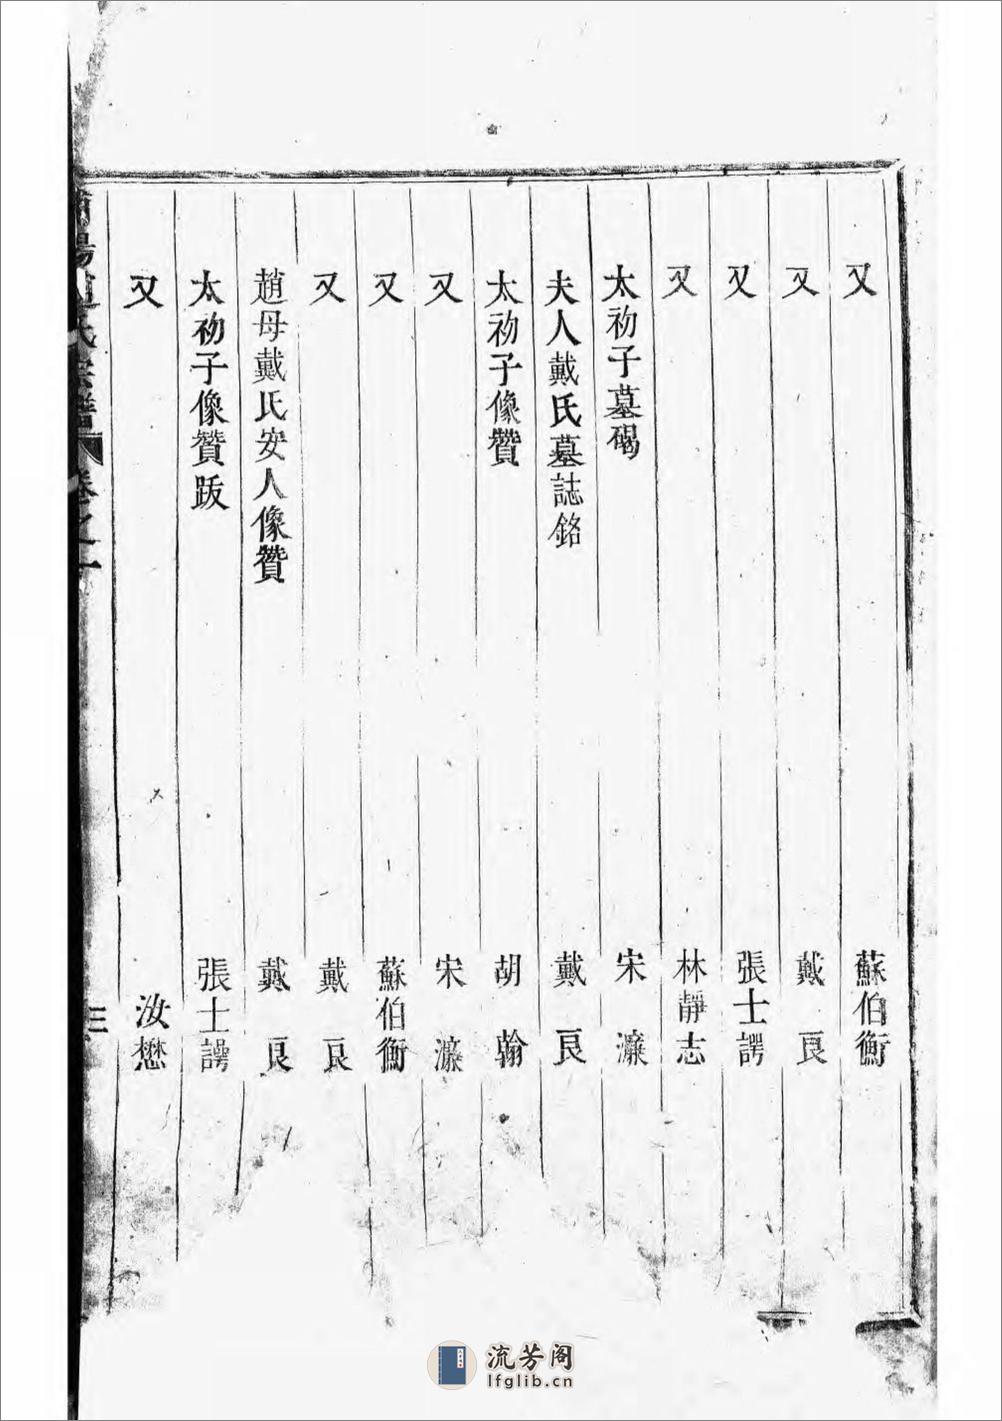 又　蘇伯衡
又　戴良
又　張士諤
又　林靜志
太初子墓碣　宋濂
夫人戴氏墓誌銘　戴良
太初子像贊　胡翰
又　宋濂
又　蘇伯衡
又　戴良
趙母戴氏安人像贊　戴良
太初子像贊跋　張士諤
又　汝懋
陽趙氏宗譜　卷之一　三
流芳阁
lfglib.cn